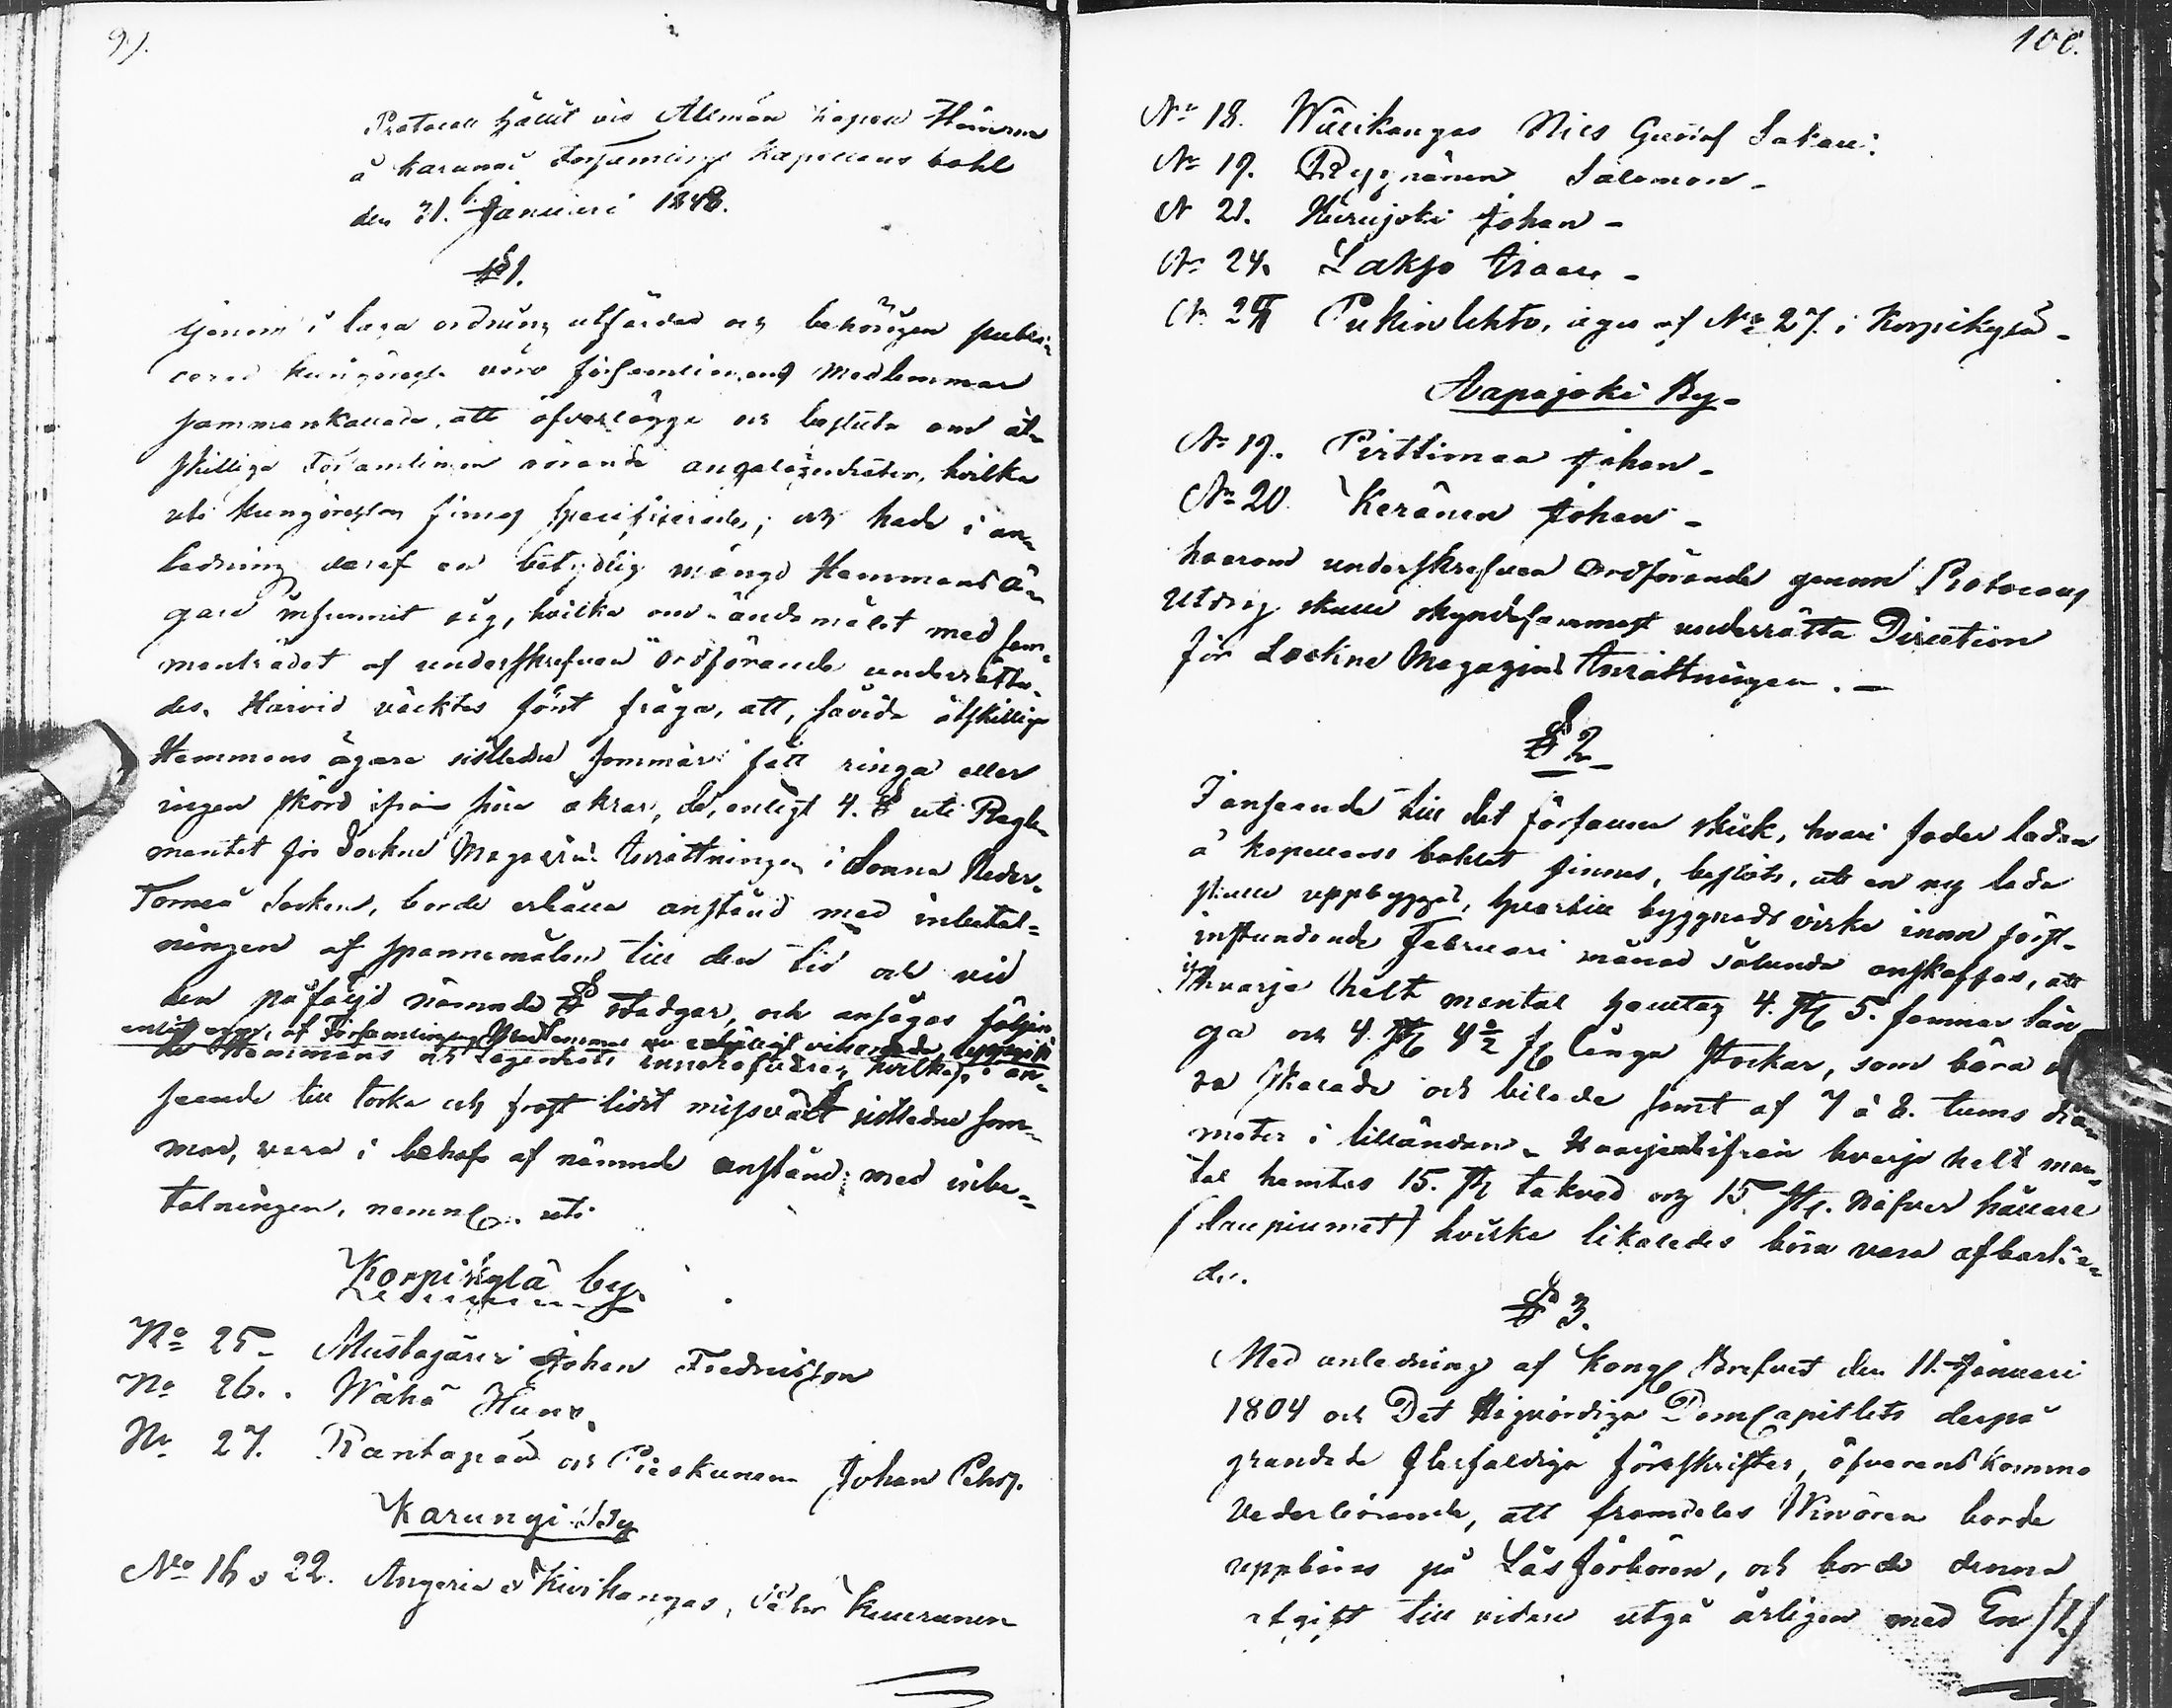 99.
Protocoll hållit vid Allmän Socken Stämma
å Karungi Församlings Kapellans bohl
den 31. Januari 1848.
§ 1.
Genom i laga ordning utfärdad och behörigen publi-
cerad kungörelse voro församlingens medlemmar
sammankallade, att öfverlägga och besluta om åt-
skilliga Församlingen rörande angelägenheter, hvilka
uti kungörelsen finnas specificerade; och hade i an-
ledning deraf en betydlig mängd Hemmans ä-
gare infunnit sig, hvilka om ändamålet med sam-
manträdet af underskrefven Ordförande underrätta-
des. Härvid väcktes först fråga, att, såvida åtskillige
Hemmans ägare sistledne sommar fått ringa eller
ingen skörd ifrån sina åkrar, de, enligt 4. § uti Regle-
mentet för Sockne Magazins Inrättningen i denna Neder-
Torneå Socken, borde erhålla anstånd med inbetal-
ningen af spannemålen till den tid och vid
den påföljd nämnde § stadgar, och ansågos följan-
enligt af Församlingens Medlemmar uppgift
de Hemmans och Lägenhets innehafvare, hvilka i an-
seende till torka och frost lidit missväxt sistledne som-
mar, vara i behof af nämnde anstånd med inbe-
talningen, neml. uti
Korpikylä by.
No 25 - Mustajärvi Johan Fredriksson
No 26. Wähä Hans.
No 27. Rantapää och Pieskanen Johan Pehrs.
Karungi By
No 16 o 22. Angeria o Kivikangas, Pehr Kuuranen
100.
No 18. Wälikangas Nils Gustaf Sakari.
No 19. Ryynänen Salomon -
N 21. Hurujoki Johan -
No 24. Lakso Isaac -
N. 2 Pukinlehto, äges af No 27. i Korpikylä -
Aapajoki By -
No 19. Pirttimaa Johan -
No 20. Keränen Johan -
hvarom underskrefven Ordförande genom Protocolls
Utdrag skulle skyndsammast underrätta Direction
för Sockne Magazins Inrättningen. —
§ 2
I anseende till det förfallna skick, hvari foder ladan
å kapellans bohlet finnes, beslöts, att en ny lada
skulle uppbyggas, hvartill byggnads virke innan först-
instundande Februari månad sålunda anskaffas, att
hvarje helt mantal hemtar 4. st. 5. famnar lån
ga och 4. st. 4 ½ f. långa stockar, som böra va
ra skalade och bilade samt af 7 à 8. tums dia
meter i lilländan - Hvarjemte ifrån hvarje helt man-
tal hemtas 15. st. takved och 15. st. näfver hållare
(laupiumet) hvilka likaledes böra vara afbarka-
de.
§ 3.
Med anledning af Kongl. Brefvet den 11. Januari
1804 och Det Högvördiga DomCapitlets derpå
grundade flerfaldiga föreskrifter, öfverenskommo
Vederbörande, att framdeles Winören borde
uppbäras på Läsförhören, och borde denna
afgift till vidare utgå årligen med En /1/